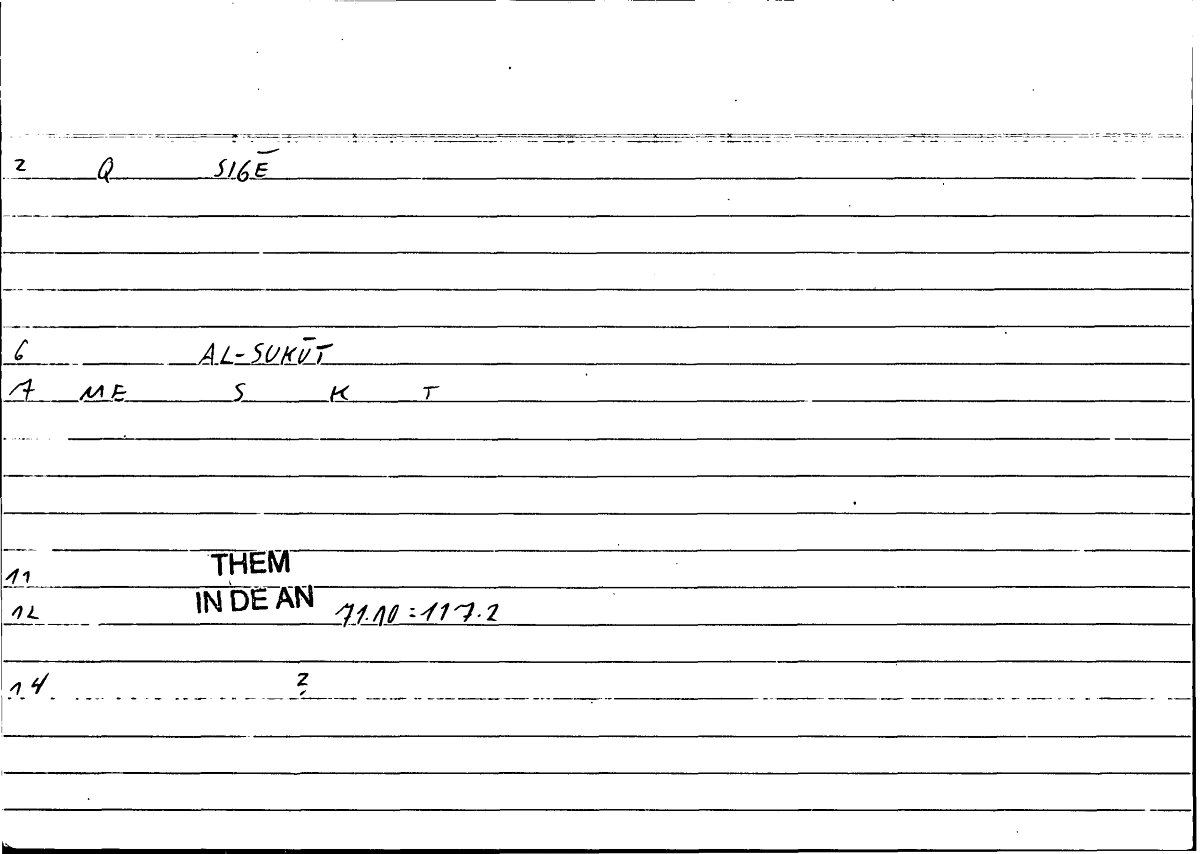 2 Q SIGĒ
6 AL-SUKŪT
7 ME S K T
11 THEM
12 IN DE AN 71.10 = 117.2
14 ?